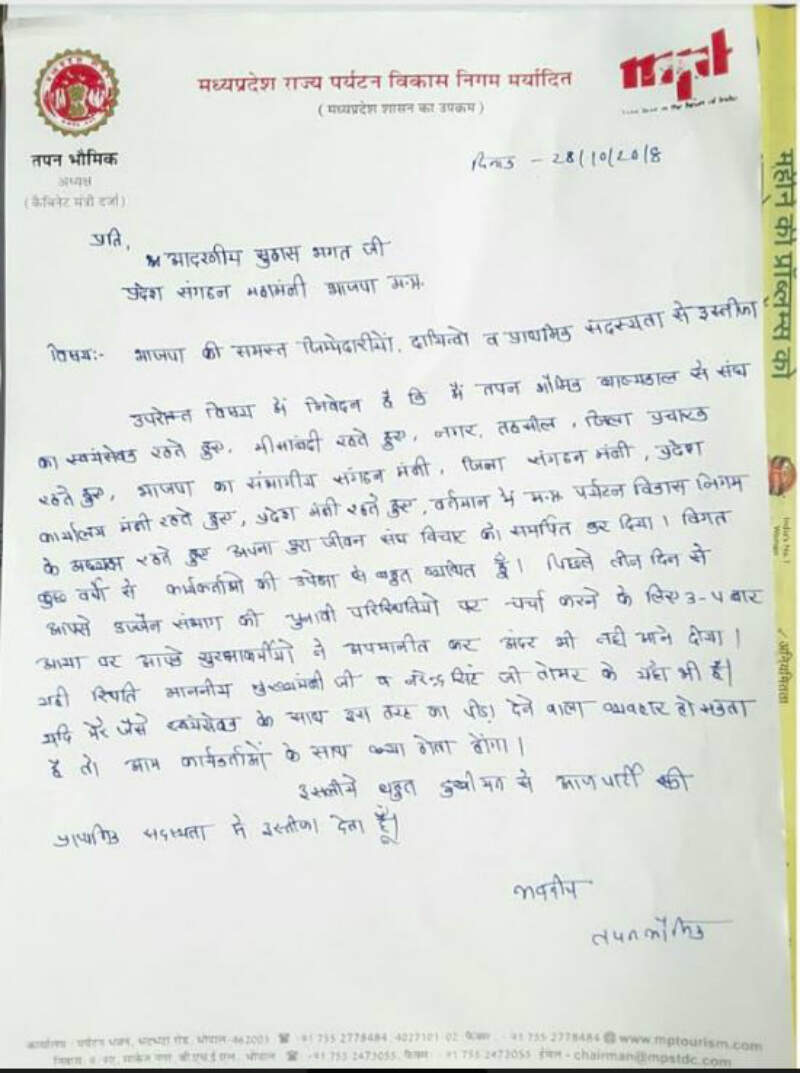 मध्यप्रदेश राज्य पर्यटन विकास निगम मर्यादित
( मध्यप्रदेश शासन का उपक्रम )
mpt
तपन भौमिक
अध्यक्ष
( कैबिनेट मंत्री दर्जा )
दिनांक - 28/10/2018
प्रति,
आदरणीय सुहास भगत जी
प्रदेश संगठन महामंत्री भाजपा म.प्र.
विषय:- भाजपा की समस्त जिम्मेदारीयों, दायित्वो व प्राथमिक सदस्यता से इस्तीफा
उपरोक्त विषय में निवेदन है कि मैं तपन भौमिक बाल्यकाल से संघ
का स्वयंसेवक रहते हुए, मीसाबंदी रहते हुए, नगर, तहसील, जिला प्रचारक
रहते हुए, भाजपा का संभागीय संगठन मंत्री, जिला संगठन मंत्री, प्रदेश
कार्यालय मंत्री रहते हुए, प्रदेश मंत्री रहते हुए, वर्तमान में म.प्र. पर्यटन विकास निगम
के अध्यक्ष रहते हुए अपना पुरा जीवन संघ विचार को समर्पित कर दिया। विगत
कुछ वर्षो से कार्यकर्ताओ की उपेक्षा से बहुत व्यथित हूँ। पिछले तीन दिन से
आपसे उज्जैन संभाग की चुनावी परिस्थितियो पर चर्चा करने के लिए 3-4 बार
आया पर आपके सुरक्षाकर्मीयो ने अपमानीत कर अंदर भी नही आने दीया।
यही स्थिति माननीय मुख्यमंत्री जी व नरेन्द्र सिंह जी तोमर के यहाँ भी है।
यदि मेरे जैसे स्वयंसेवक के साथ इस तरह का पीडा देने वाला व्यवहार हो सकता
है तो आम कार्यकर्ताओं के साथ क्या होता होंगा।
इसलीये बहुत दुखी मन से आज पार्टी की
प्राथमिक सदस्यता से इस्तीफा देता हूँ।
भवदीय
तपन भौमिक
कार्यालय : पर्यटन भवन, भदभदा रोड, भोपाल-462003 ☎ +91 755 2778484, 4027101-02 फैक्स : +91 755 2778484 www.mptourism.com
साकेत नगर, बी.एच.ई.एल., भोपाल ☎ +91 755 2473055, फैक्स - +91 755 2473055 ईमेल - chairman@mpstdc.com
महीने की प्रॉब्लम्स को
India's No.1
अनियमितता